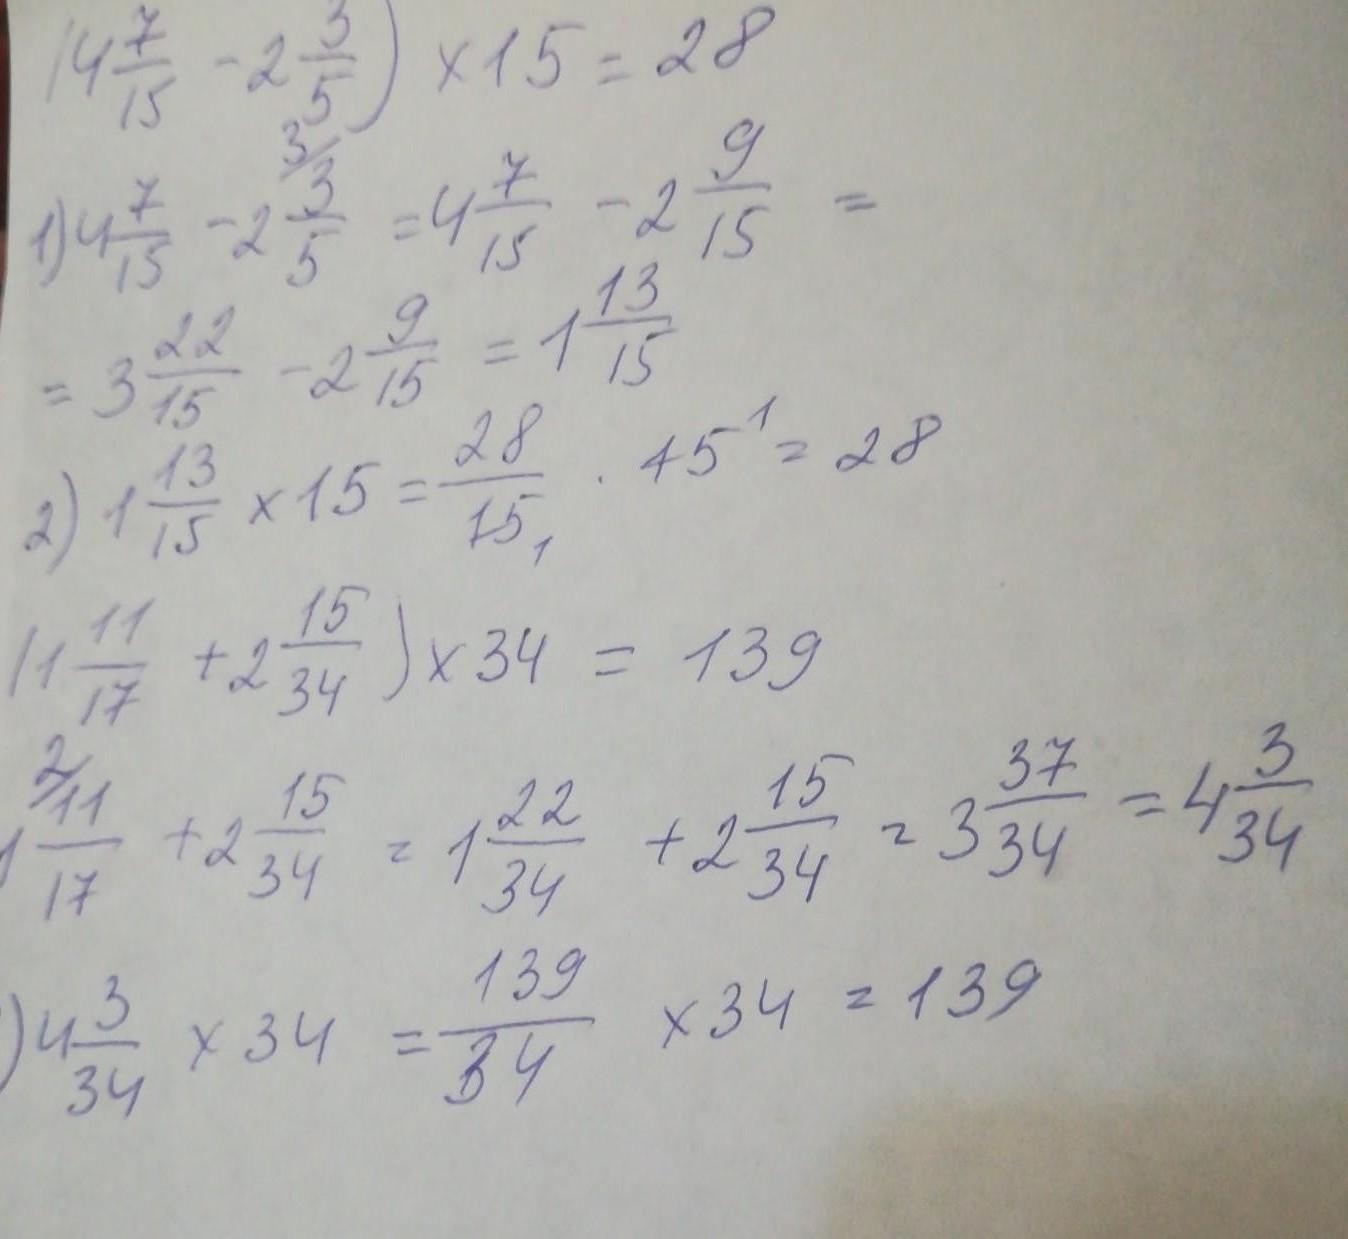 (4 7/15 - 2 3/5) × 15 = 28
1) 4 7/15 - 2 3/5 3/ = 4 7/15 - 2 9/15 =
= 3 22/15 - 2 9/15 = 1 13/15
2) 1 13/15 × 15 = 28/15 1 · 15 1 = 28
(1 11/17 + 2 15/34) × 34 = 139
1 11/17 2/ + 2 15/34 = 1 22/34 + 2 15/34 = 3 37/34 = 4 3/34
) 4 3/34 × 34 = 139/34 × 34 = 139